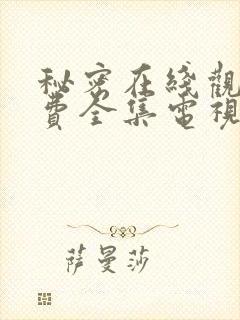 秘密在綫觀
費全集電視
萨曼莎